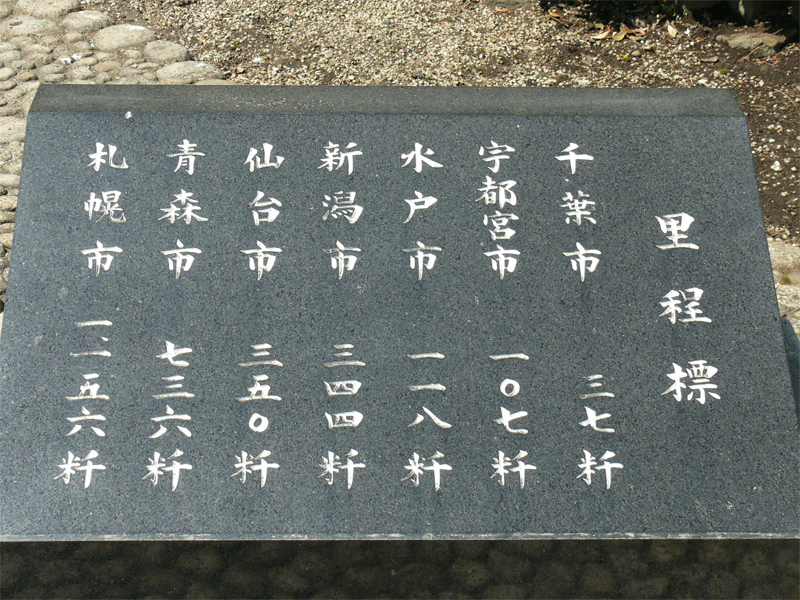 里程標
千葉市 三七粁
宇都宮市 一〇七粁
水户市 一一八粁
新潟市 三四四粁
仙台市 三五〇粁
青森市 七三六粁
札幌市 一、一五六粁